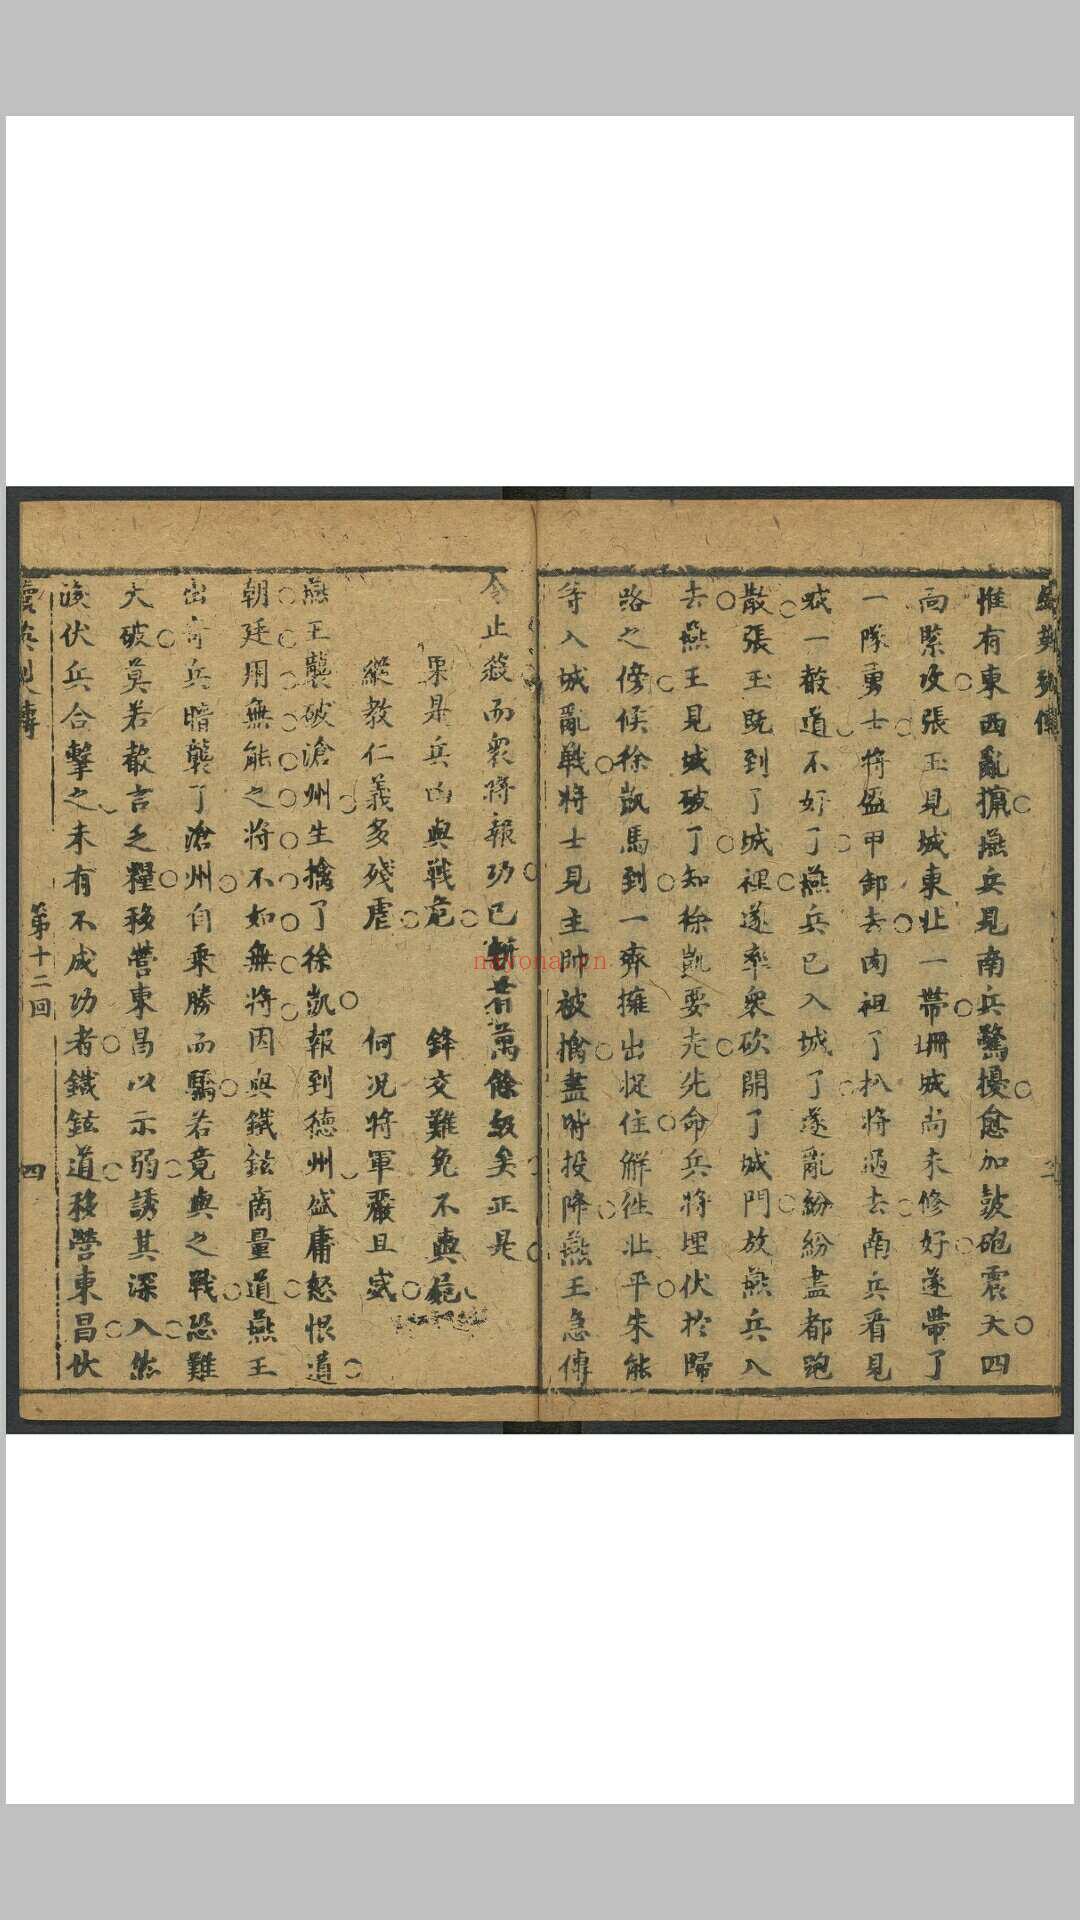 惟有東西亂攛燕兵見南兵驚擾愈加鼓砲震天四
面緊攻張玉見城東北一帶坍城尚未修好遂帶了
一隊勇士將盔甲卸去肉袒了扒將過去南兵看見
喊一聲道不好了燕兵已入城了遂亂紛紛盡都跑
散張玉既到了城裡遂率衆砍開了城門放燕兵入
去燕王見城破了知徐凱要走先命兵將埋伏於歸
路之傍候徐凱馬到一齊擁出捉住解徃北平朱能
等入城亂戰將士見主帥被擒盡皆投降燕王急傳
令止殺而衆將報功已斬首萬餘級矣正是
果是兵凶與戰危 鋒交難免不輿屍
縱教仁義多殘虐 何况將軍嚴且威
燕王襲破滄州生擒了徐凱報到德州盛庸怒恨道
朝廷用無能之將不如無將因與鐵鉉商量道燕王
出奇兵暗襲了滄州自乘勝而驕若竟與之戰恐難
大破莫若散言乏糧移營東昌以示弱誘其深入然
後伏兵合擊之未有不成功者鐵鉉道移營東昌伏
第十二回 四
nayona.cn